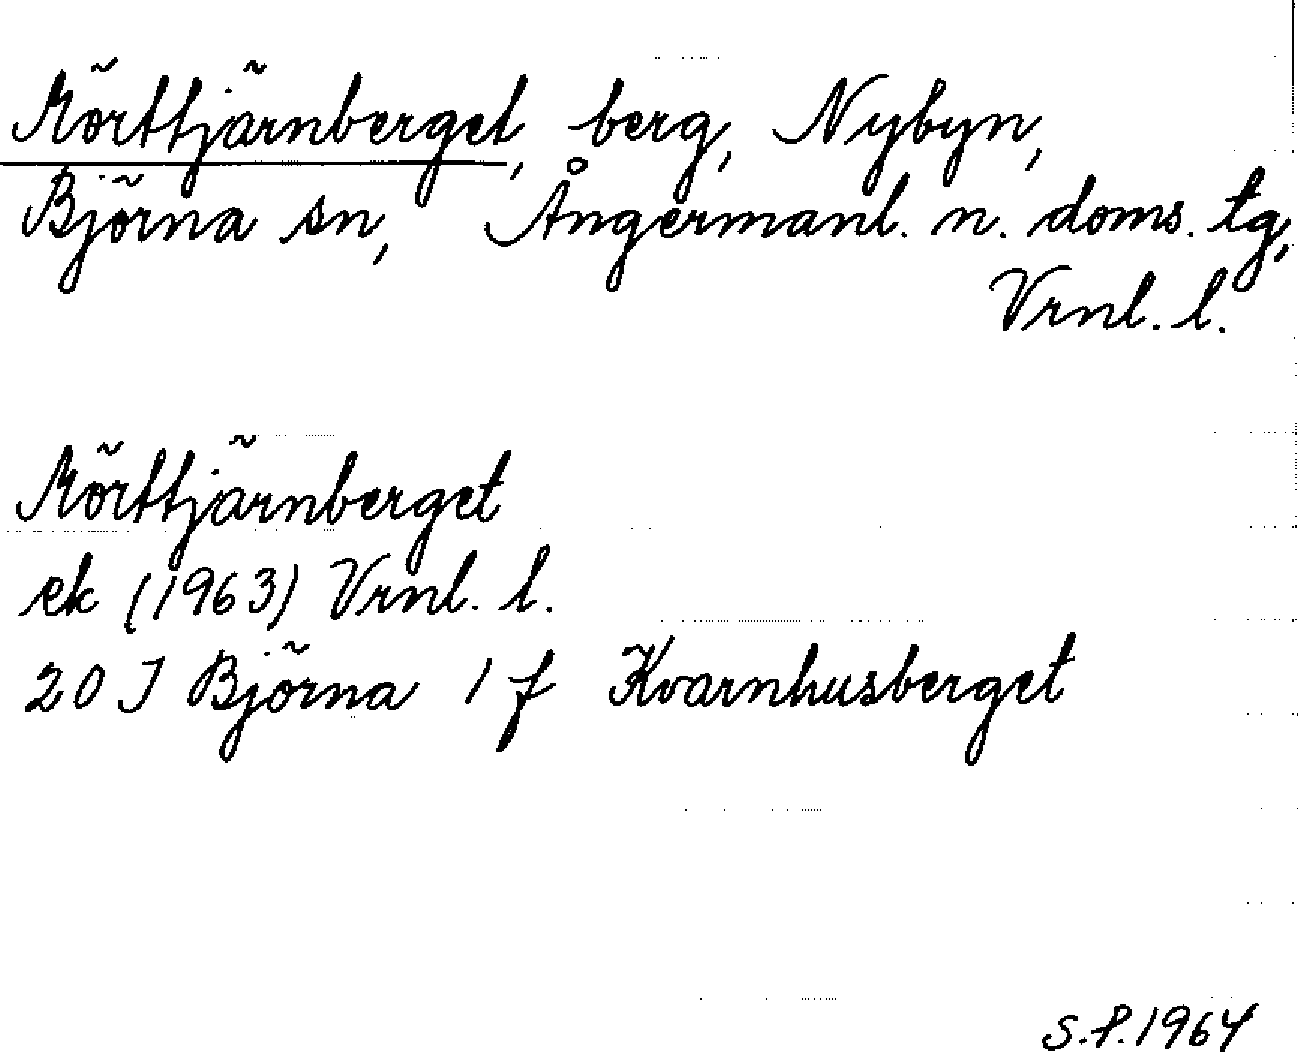 Mörttjärnberget, berg, Nybyn,
Björna sn, Ångermanl. n. doms. tg,
Vrnl. l.
Mörttjärnberget
ek (1963) Vrnl. l.
20 J Björna 1 f Kvarnhusberget
S.P. 1964